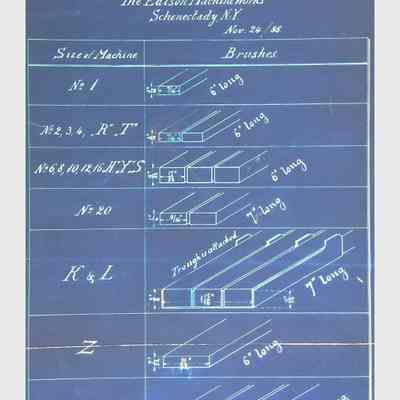 The Edison Machine Works
Schenectady N.Y
Nov. 24/86
Size of Machine Brushes
No 1 6" long
No 2, 3, 4, "R" "T" 6" long
No 6, 8, 10, 12, 16 H.Y.S 6" long
No 20 7" long
K & L Trough is attached 7" long
Z 6" long